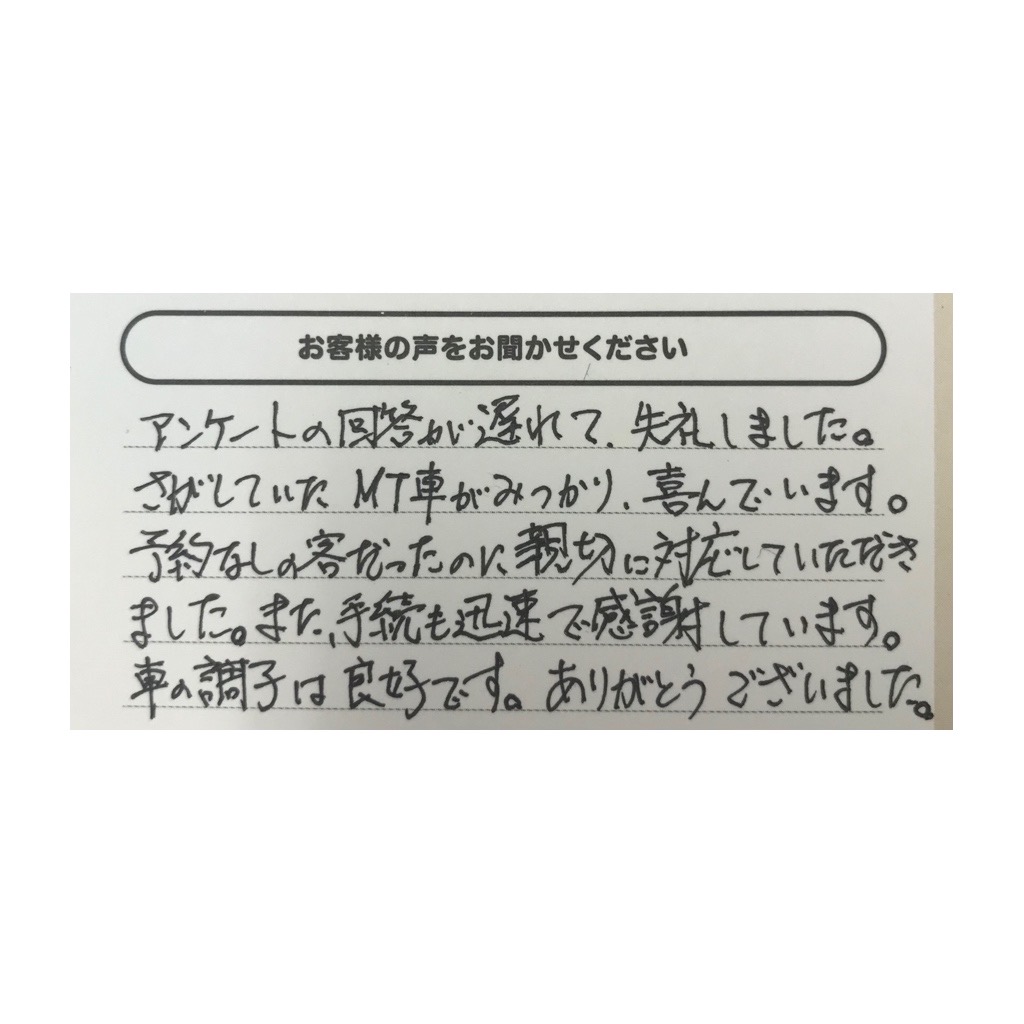 お客様の声をお聞かせください
アンケートの回答が遅れて、失礼しました。
さがしていたMT車がみつかり、喜んでいます。
予約なしの客だったのに親切に対応していただき
ました。また、手続も迅速で感謝しています。
車の調子は良好です。ありがとうございました。